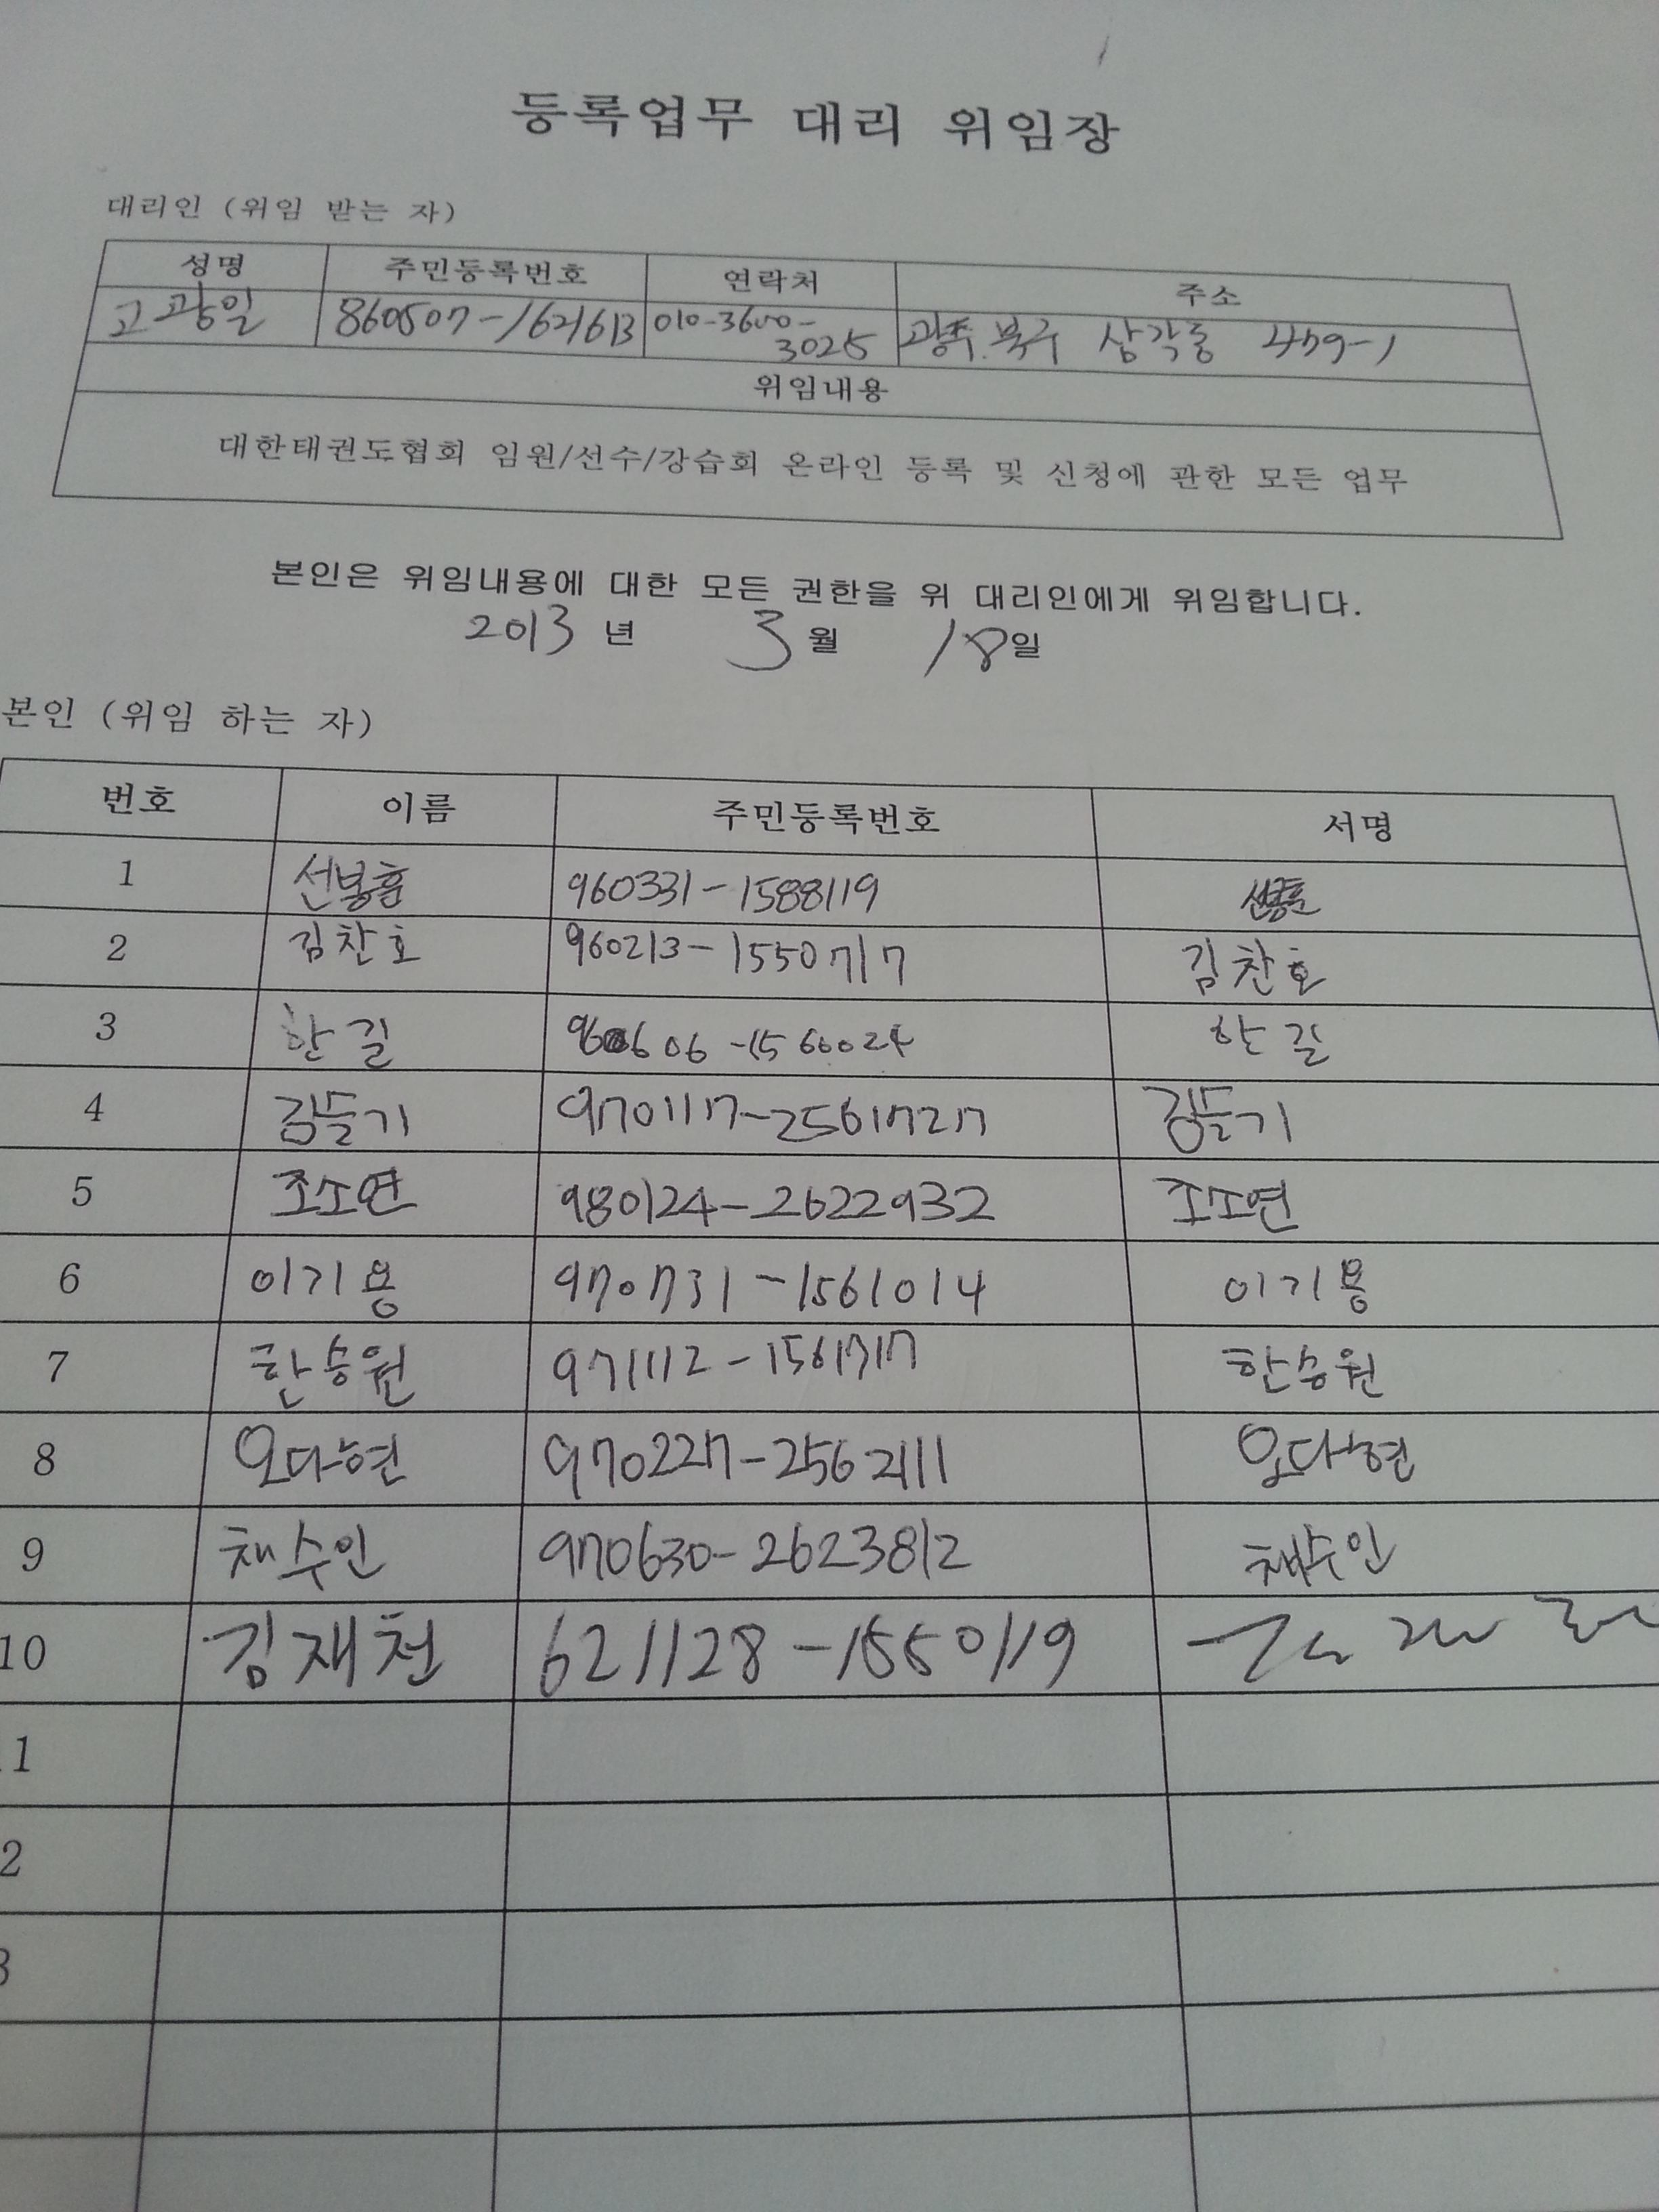 등록업무 대리 위임장
대리인 (위임 받는 자)
성명 주민등록번호 연락처 주소
고광일 860507-1621613 010-3600-3025 광주.북구 삼각동 459-1
위임내용
대한태권도협회 임원/선수/강습회 온라인 등록 및 신청에 관한 모든 업무
본인은 위임내용에 대한 모든 권한을 위 대리인에게 위임합니다.
2013 년 3 월 18 일
본인 (위임 하는 자)
번호 이름 주민등록번호 서명
1 선봉훈 960331-1588119
2 김찬호 960213-1550717 김찬호
3 한길 한길
4 김들기 970117-2561727 김들기
5 조소연 980124-2622932 조소연
6 이기용 970731-1561014 이기용
7 한승원 971112-1561717 한승원
8 오다현 970227-2562111 오다현
9 채수인 970630-2623812 채수인
10 김재천 621128-1550119